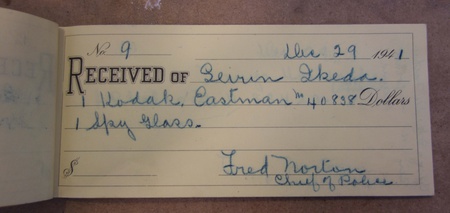 No. 9 Dec 29 1941
RECEIVED OF Seirin Ikeda.
1 Kodak, Eastman No 40838 Dollars
1 Spy Glass.
$ Fred Norton
Chief of Police